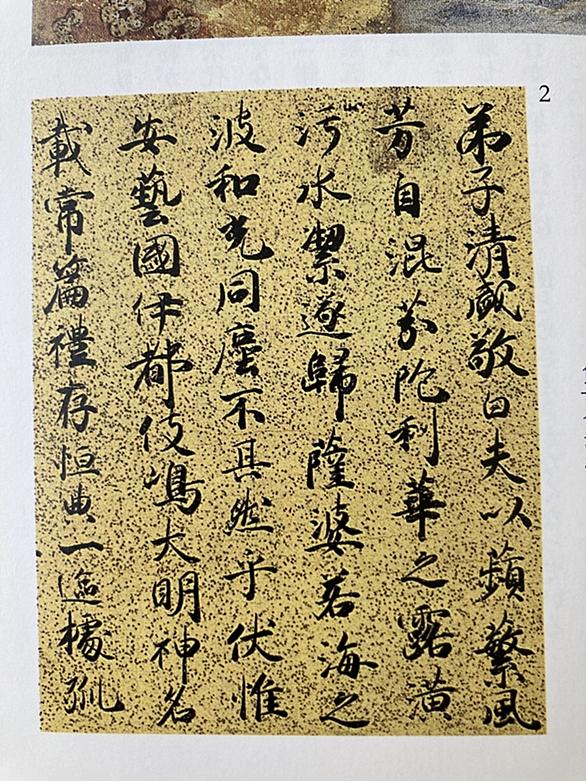 2
弟子清盛敬白夫以蘋繁風
芳自混芬陀利華之露潢
汚水潔遂歸薩婆若海之
波和光同塵不其然乎伏惟
安藝國伊都伎嶋大明神名
載常篇禮存恒典一